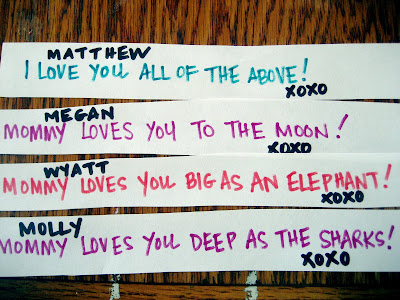 MATTHEW
I LOVE YOU ALL OF THE ABOVE!
XOXO
MEGAN
MOMMY LOVES YOU TO THE MOON!
XOXO
WYATT
MOMMY LOVES YOU BIG AS AN ELEPHANT!
XOXO
MOLLY
MOMMY LOVES YOU DEEP AS THE SHARKS!
XOXO